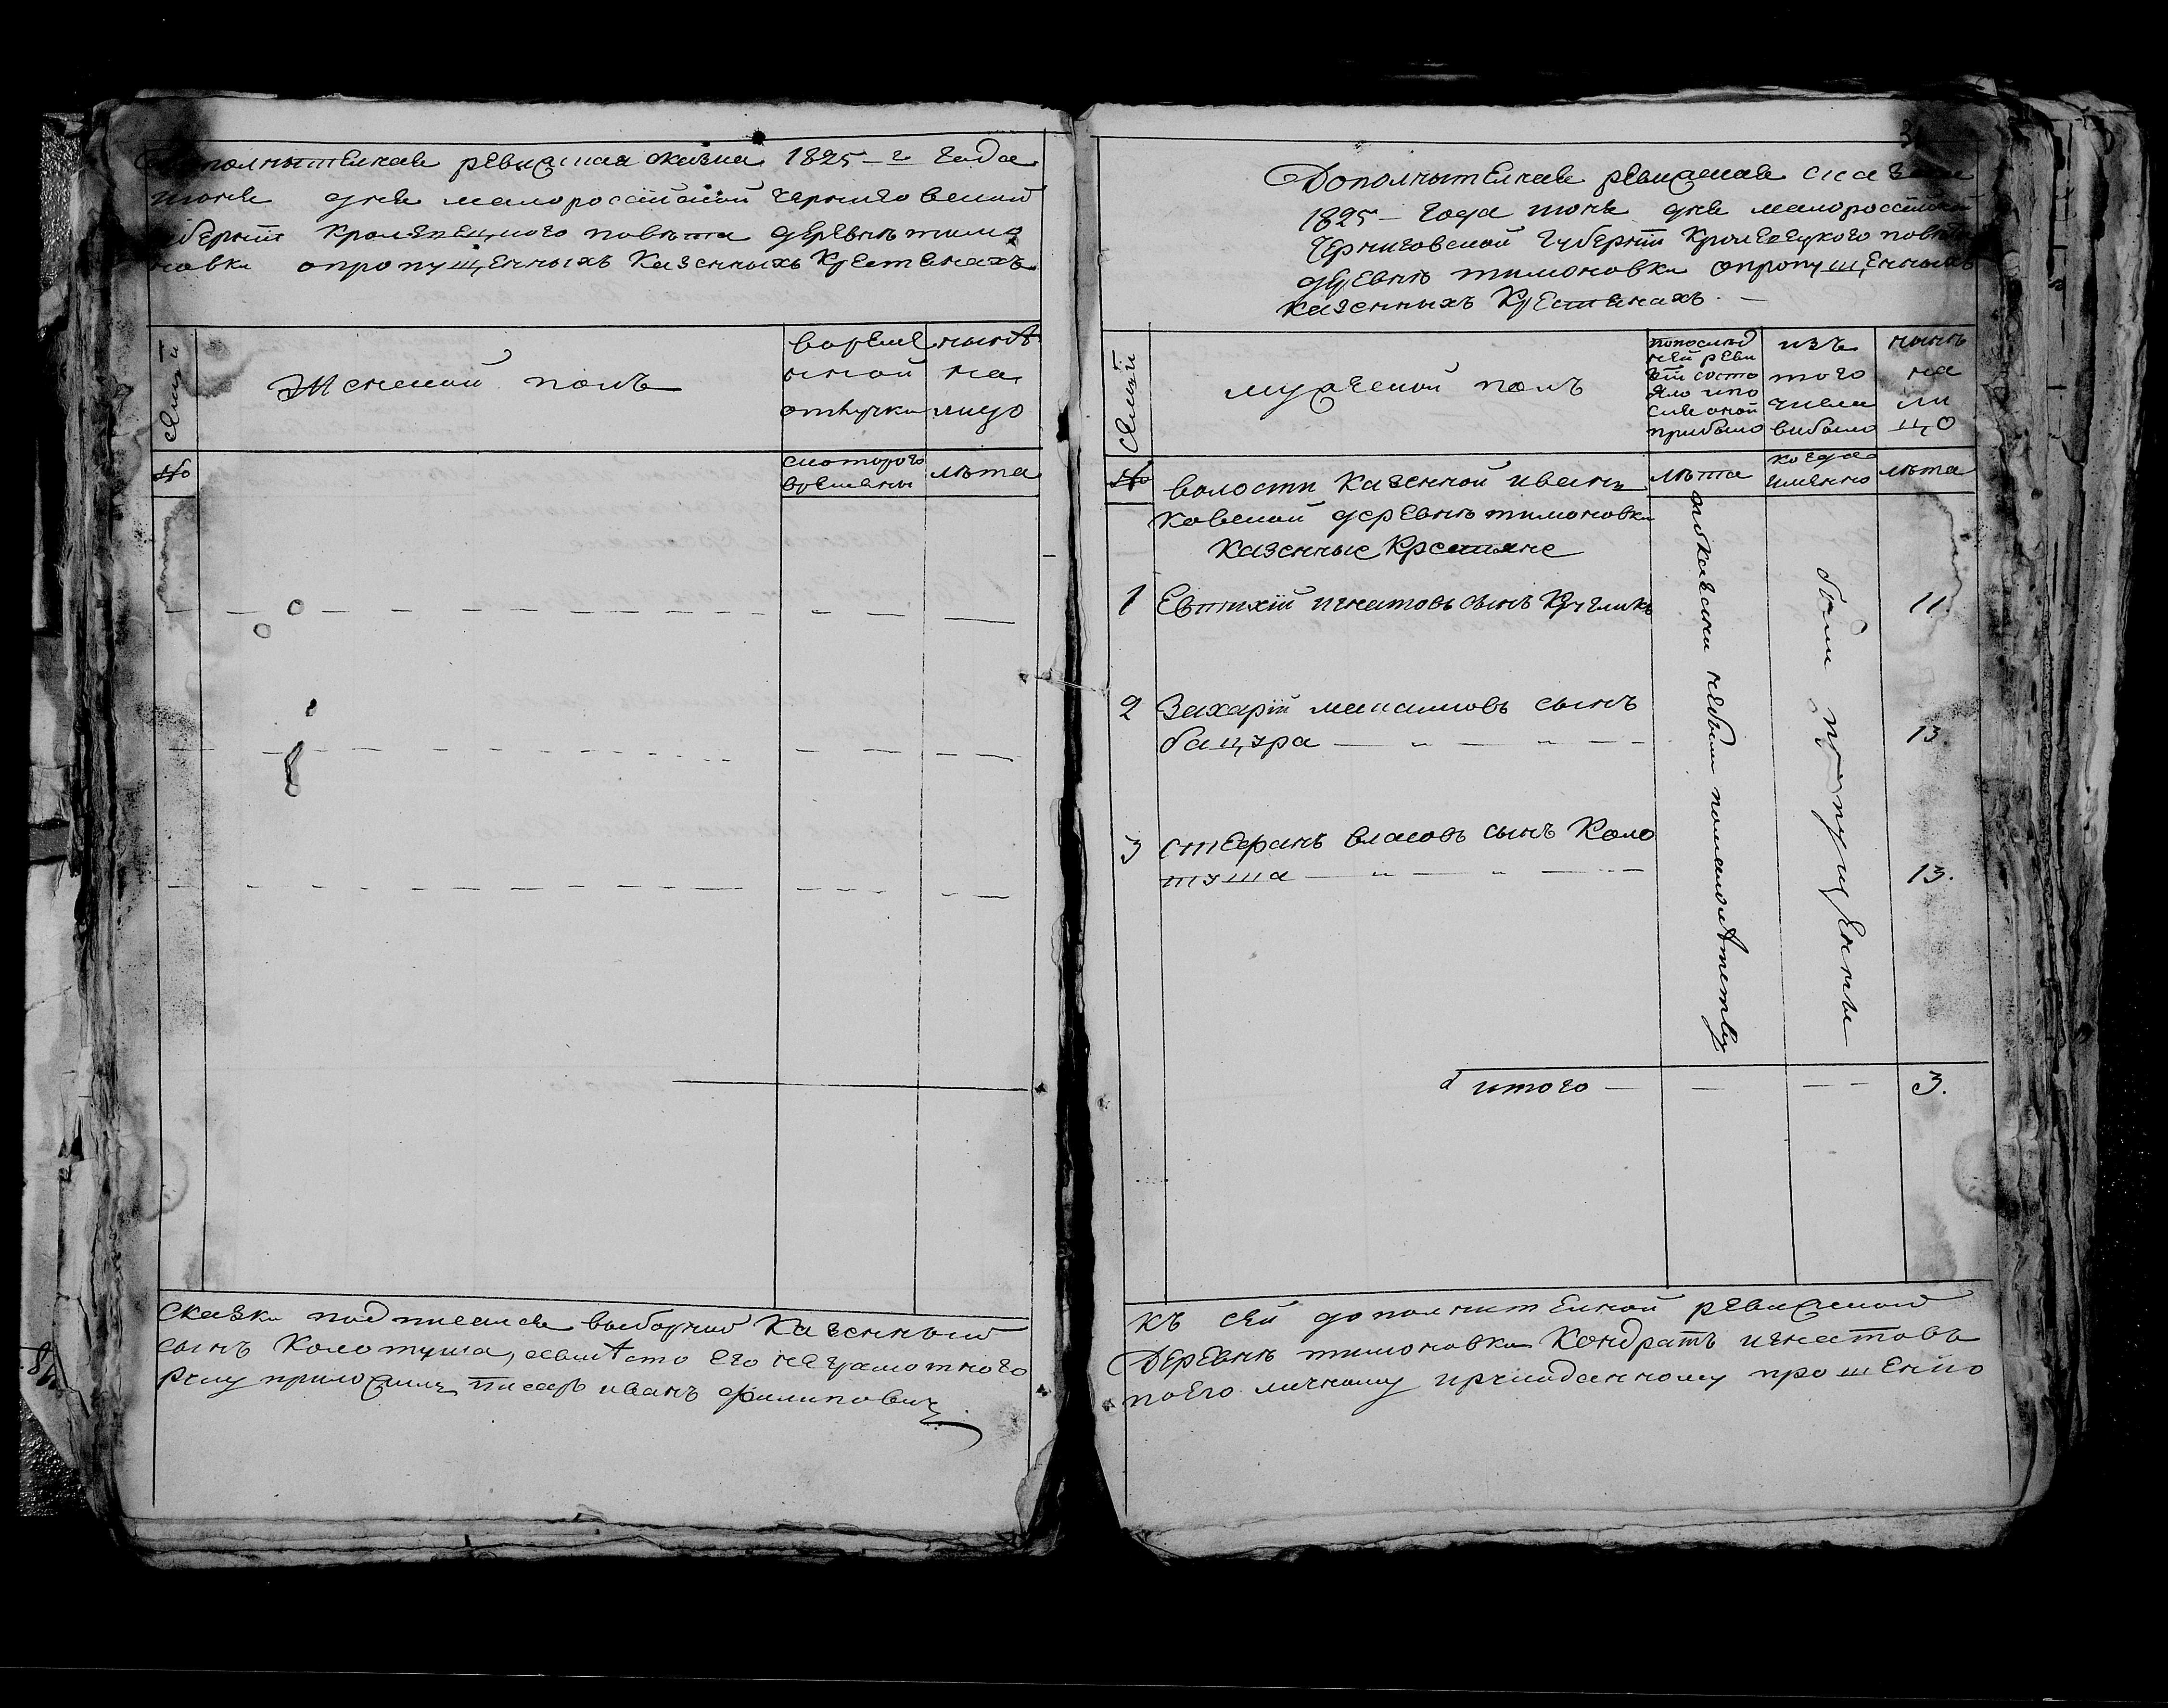 Дополнытелная ревизская сказка 1825-г года
июня дня малороссійской черниговской
губерніи кролевецкого повѣта деревнѣ тимо
новки опропущенныхъ Казенныхъ Крестянахъ
Фамилїи
Женской полъ
вовреме
нной
отлучки
нынѣ
на
лицо
№
скоторого
времаны
лѣта
Сказки подписался выборний Казенный
сынъ Колотуша, авмѣсто его неграмотного
руку приложилъ писарь иванъ филиповичъ
Дополнытелная ревизская сказка
1825- Года июня дня малороссійской
Черниговской Губерніи Кролевецкого повѣта
деревнѣ тимоновки опропущенныхъ
казенныхъ Крестянахъ
Фамилїи
мужеской полъ
попослѣд
ней реви
зїи состо
яло ипо
слѣ оной
прибыло
изъ
того
числа
выбыло
нынѣ
на
ли
цо
№
лѣта
когда
имянно
лѣта
волости казенной иванъ
ковской деревнѣ тимоновки
казенные Крестяне
1 Евтихїй игнатовъ сынъ Кругликъ 11
2 Захарїй максимовъ сынъ
бацура 13
3 стефанъ власовъ сынъ Коло
туша 13.
посказски небыли помалолѣтству
были пропущенны
итого 3.
къ сей дополнителной ревизской
Деревнѣ тимоновки Кондратъ игнатовъ
поего личному ирукоданному прошенїю